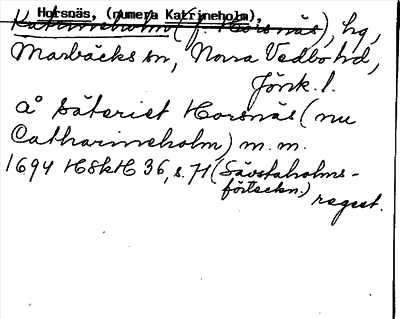 Horsnäs, (numera Katrineholm),
Katrineholm (f. Horsnäs), hg,
Marbäcks sn, Norra Vedbo hd,
Jönk. l.
å säteriet Horsnäs (nu
Catharineholm) m. m.
1694 HSkH 36, s. 71 (Sävstaholms-
förteckn.) regest.